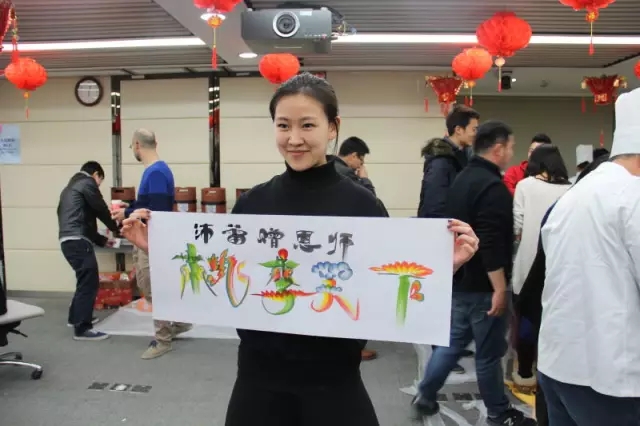 沛赠恩师
桃李天下